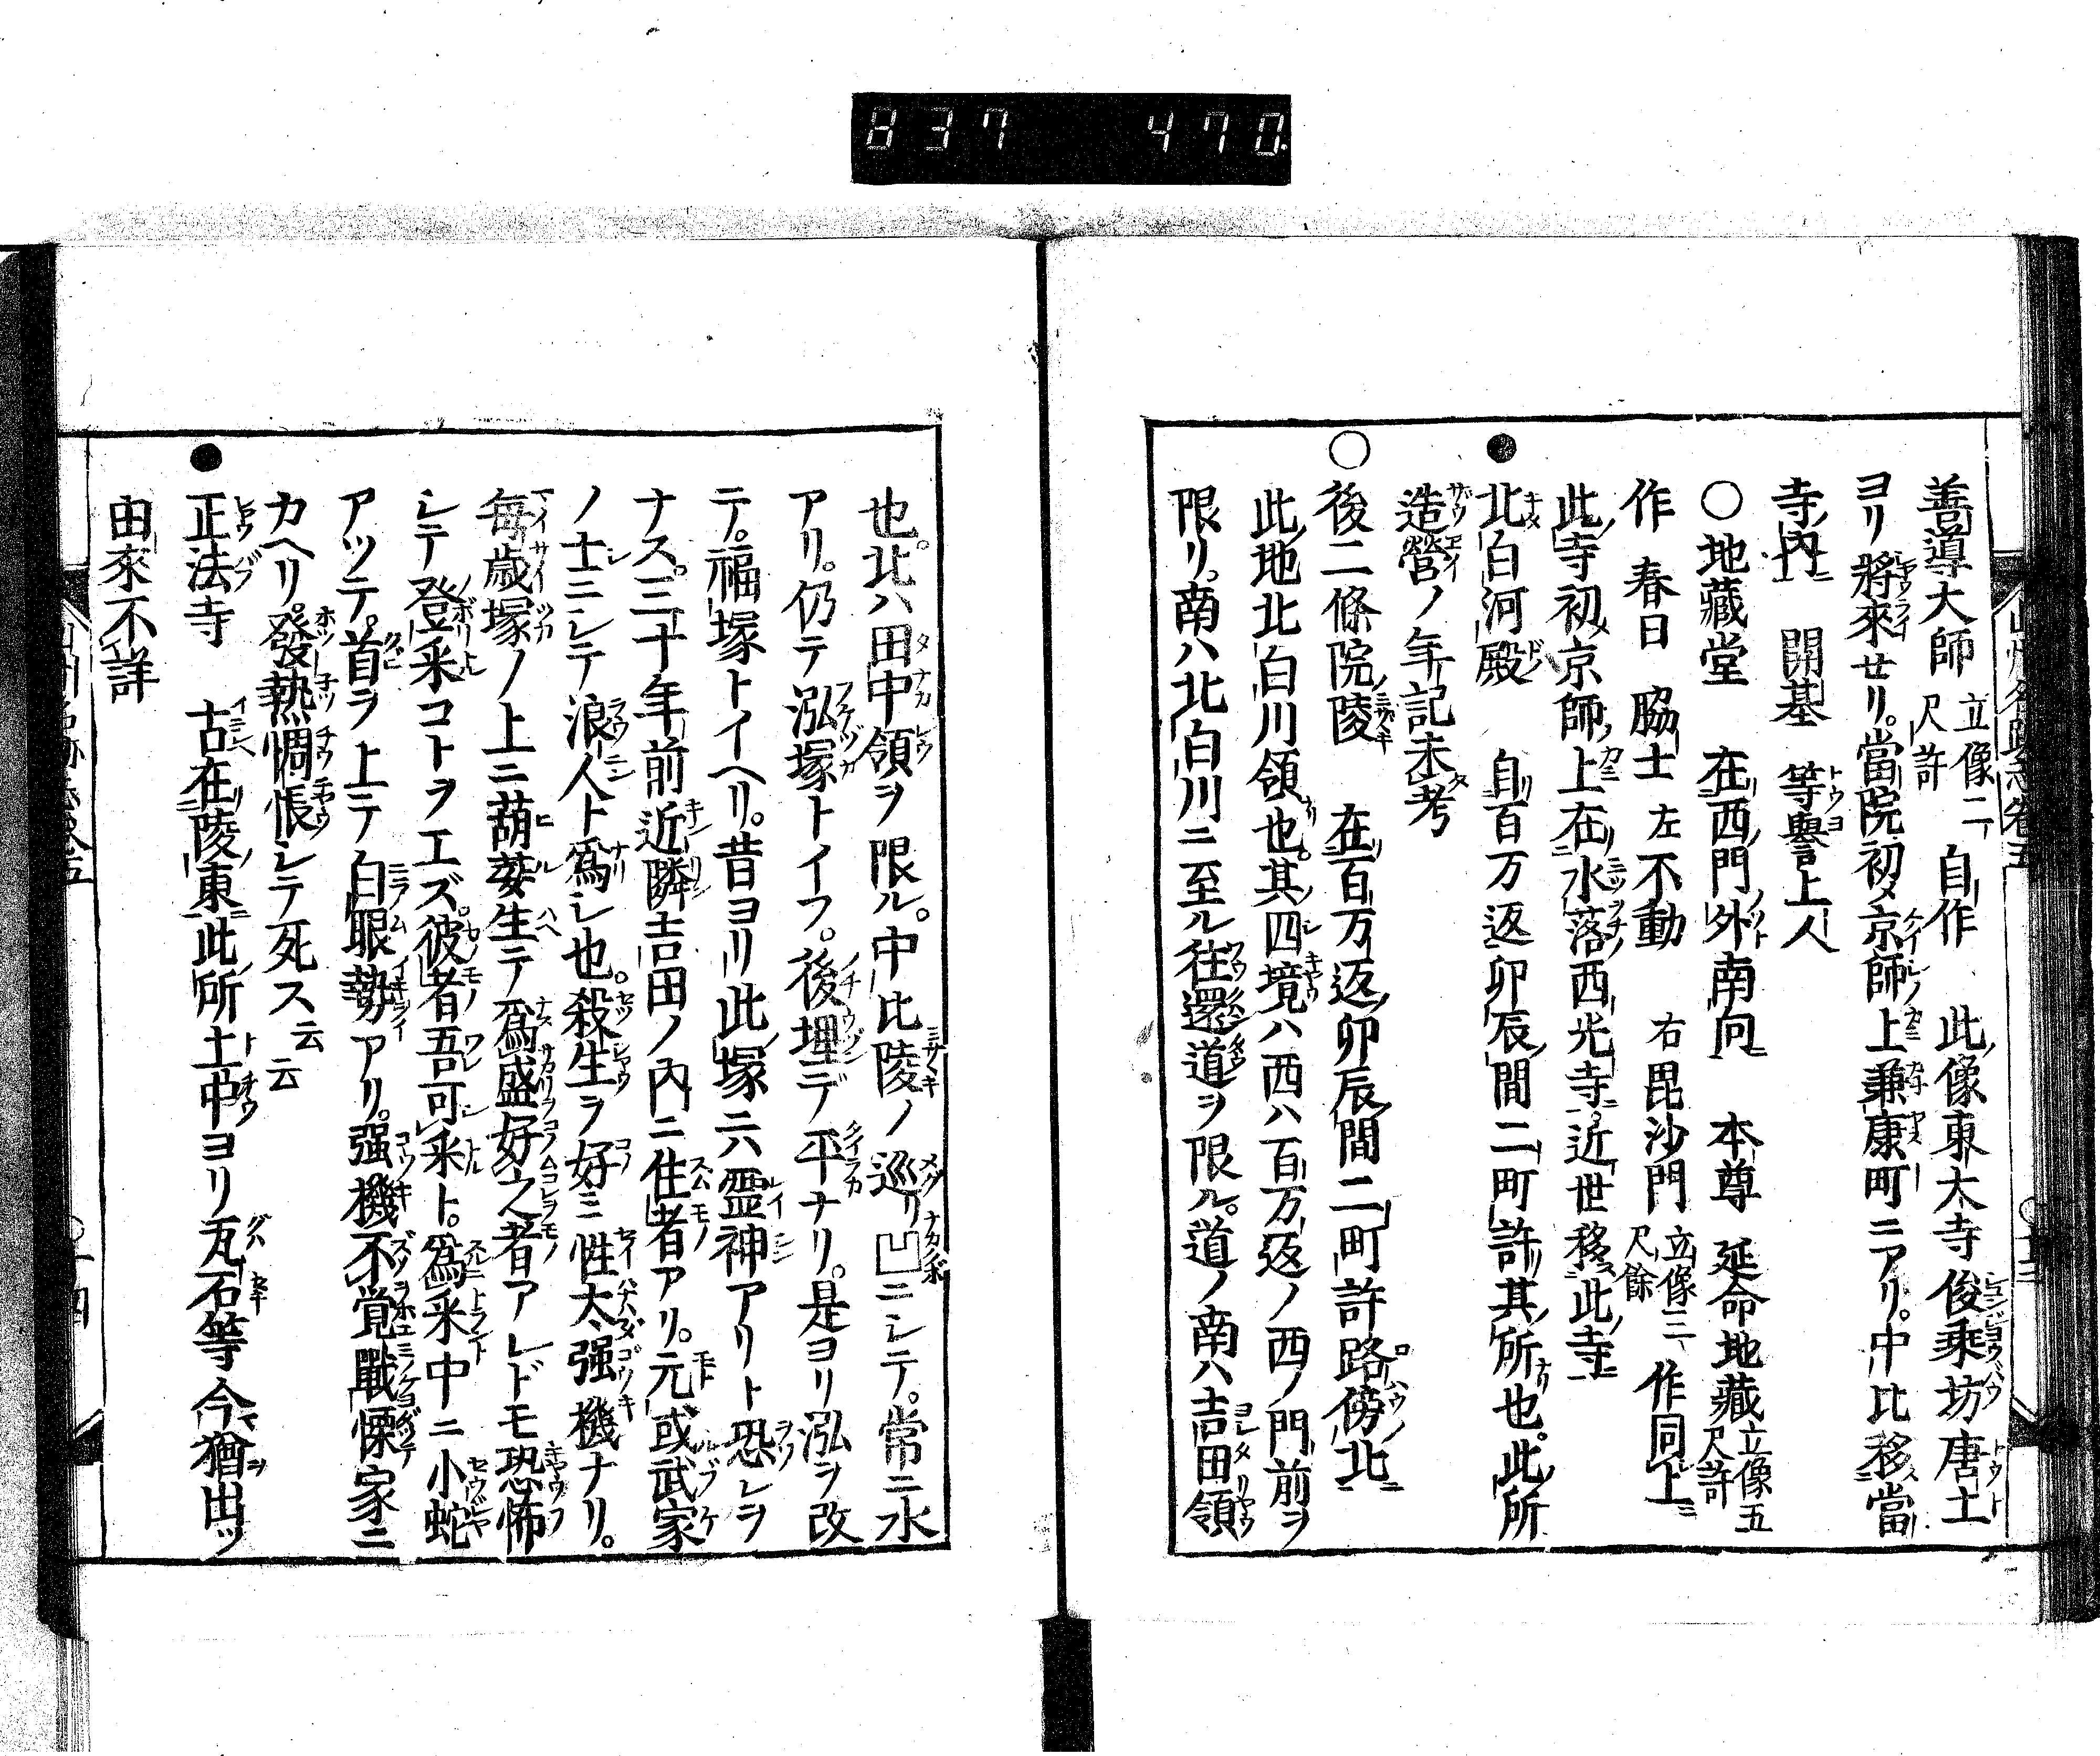 837 470
善導大師 立像二尺許 自作 此像東大寺俊乘坊唐土
ヨリ將來セリ。當院初メ京師上兼康町ニアリ。中比移當
寺內 開基 等譽上人
○地藏堂 在西門外南向 本尊 延命地藏立像五尺許
作 春日 脇士 左不動 右毘沙門 立像三尺餘 作同上
此寺初メ京師上在水落西光寺近世移此寺
●北白河殿 自百万返卯辰間二町許其所也。此所
造營ノ年記未考
○後二條院陵 在百万返卯辰間二町許路傍北
此地北白川領也。其四境ハ西ハ百万返ノ西ノ門前ヲ
限リ。南ハ北白川ニ至ル往還道ヲ限ル。道ノ南ハ吉田領
也。北ハ田中領ヲ限ル。中比陵ノ巡リ凹ニシテ。常ニ水
アリ。仍テ泓塚トイフ。後埋デ平ナリ。是ヨリ泓ヲ改
テ。福塚トイヘリ。昔ヨリ此塚ニハ霊神アリト恐レヲ
ナス。三十年前近隣吉田ノ內ニ住者アリ。元或武家
ノ士ニシテ浪人ト爲シ也。殺生ヲ好ミ性太强機ナリ。
每歲塚ノ上ニ葫荽生テ爲盛好之者アレドモ恐怖
シテ登采コトヲエズ。彼者吾可采ト。爲采中ニ小蛇
アツテ。首ヲ上テ白眼勢アリ。强機不覚戰慄家ニ
カヘリ。發熱惆悵シテ死ス云云
●正法寺 古在陵東此所土中ヨリ瓦石等今猶出ツ
由來不詳